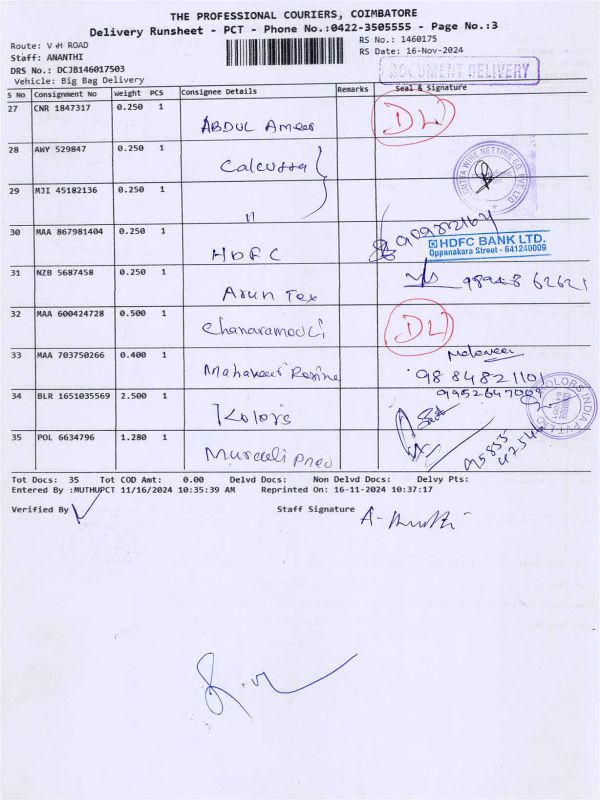 THE PROFESSIONAL COURIERS, COIMBATORE
Delivery Runsheet - PCT - Phone No.:0422-3505555 - Page No.:3
Route: V H ROAD
RS No.: 1460175
Staff: ANANTHI
RS Date: 16-Nov-2024
DRS No.: DCJB146017503
Vehicle: Big Bag Delivery
DOCUMENT DELIVERY
S No Consignment No Weight PCS Consignee Details Remarks Seal & Signature
27 CNR 1847317 0.250 1
ABDUL Ameer
DL
28 AWY 529847 0.250 1
Calcutta
29 MJI 45182136 0.250 1
"
30 MAA 867981404 0.250 1
HDFC
HDFC BANK LTD.
Oppanakara Street - 641240009
31 NZB 5687458 0.250 1
Arun Tex
98948 62621
32 MAA 600424728 0.500 1
Chanaramouli
DL
33 MAA 703750266 0.400 1
Mahaveer
9884821101
34 BLR 1651035569 2.500 1
Kolors
9952647009
35 POL 6634796 1.280 1
Murauli
Tot Docs: 35 Tot COD Amt: 0.00 Delvd Docs: Non Delvd Docs: Delvy Pts:
Entered By :MUTHUPCT 11/16/2024 10:35:39 AM Reprinted On: 16-11-2024 10:37:17
Verified By
Staff Signature